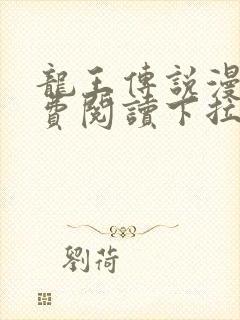 龍王傳說漫
費閱讀下拉
劉荷